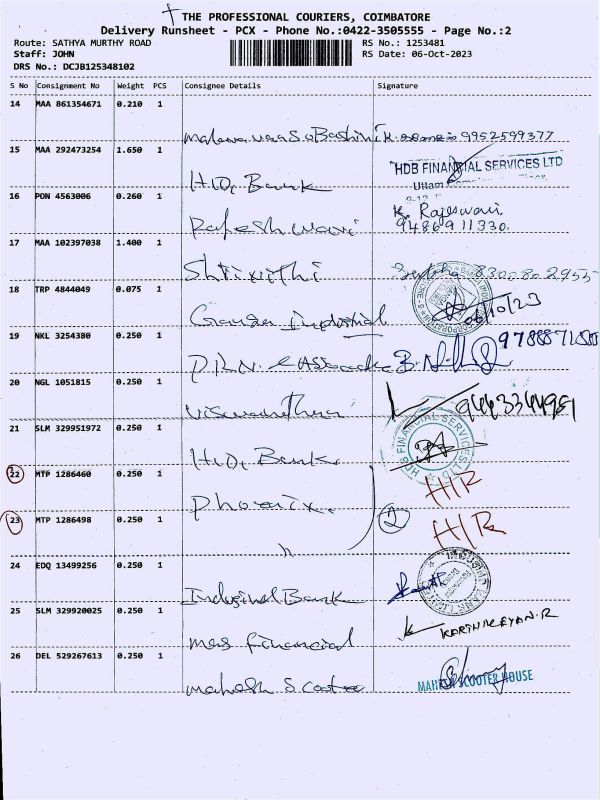 THE PROFESSIONAL COURIERS, COIMBATORE
Delivery Runsheet - PCX - Phone No.:0422-3505555 - Page No.:2
Route: SATHYA MURTHY ROAD RS No.: 1253481
Staff: JOHN RS Date: 06-Oct-2023
DRS No.: DCJB125348102
S No Consignment No Weight PCS Consignee Details Signature
14 MAA 861354671 0.210 1
9952599377
15 MAA 292473254 1.650 1
Bank HDB FINANCIAL SERVICES LTD
16 PON 4563006 0.260 1
K. Rajeswari
Rajeshwari 9486911330.
17 MAA 102397038 1.400 1
8300802955
18 TRP 4844049 0.075 1
Industrial 06/10/23
19 NKL 3254380 0.250 1
20 NGL 1051815 0.250 1
21 SLM 329951972 0.250 1
Bank HDB FINANCIAL SERVICES LTD
22 MTP 1286460 0.250 1
Phoenix. H/R
23 MTP 1286498 0.250 1
2 H/R
24 EDQ 13499256 0.250 1
Bank
25 SLM 329920025 0.250 1
mas financial KARTHIKEYAN.R
26 DEL 529267613 0.250 1
mahesh Scooter MAHESH SCOOTER HOUSE